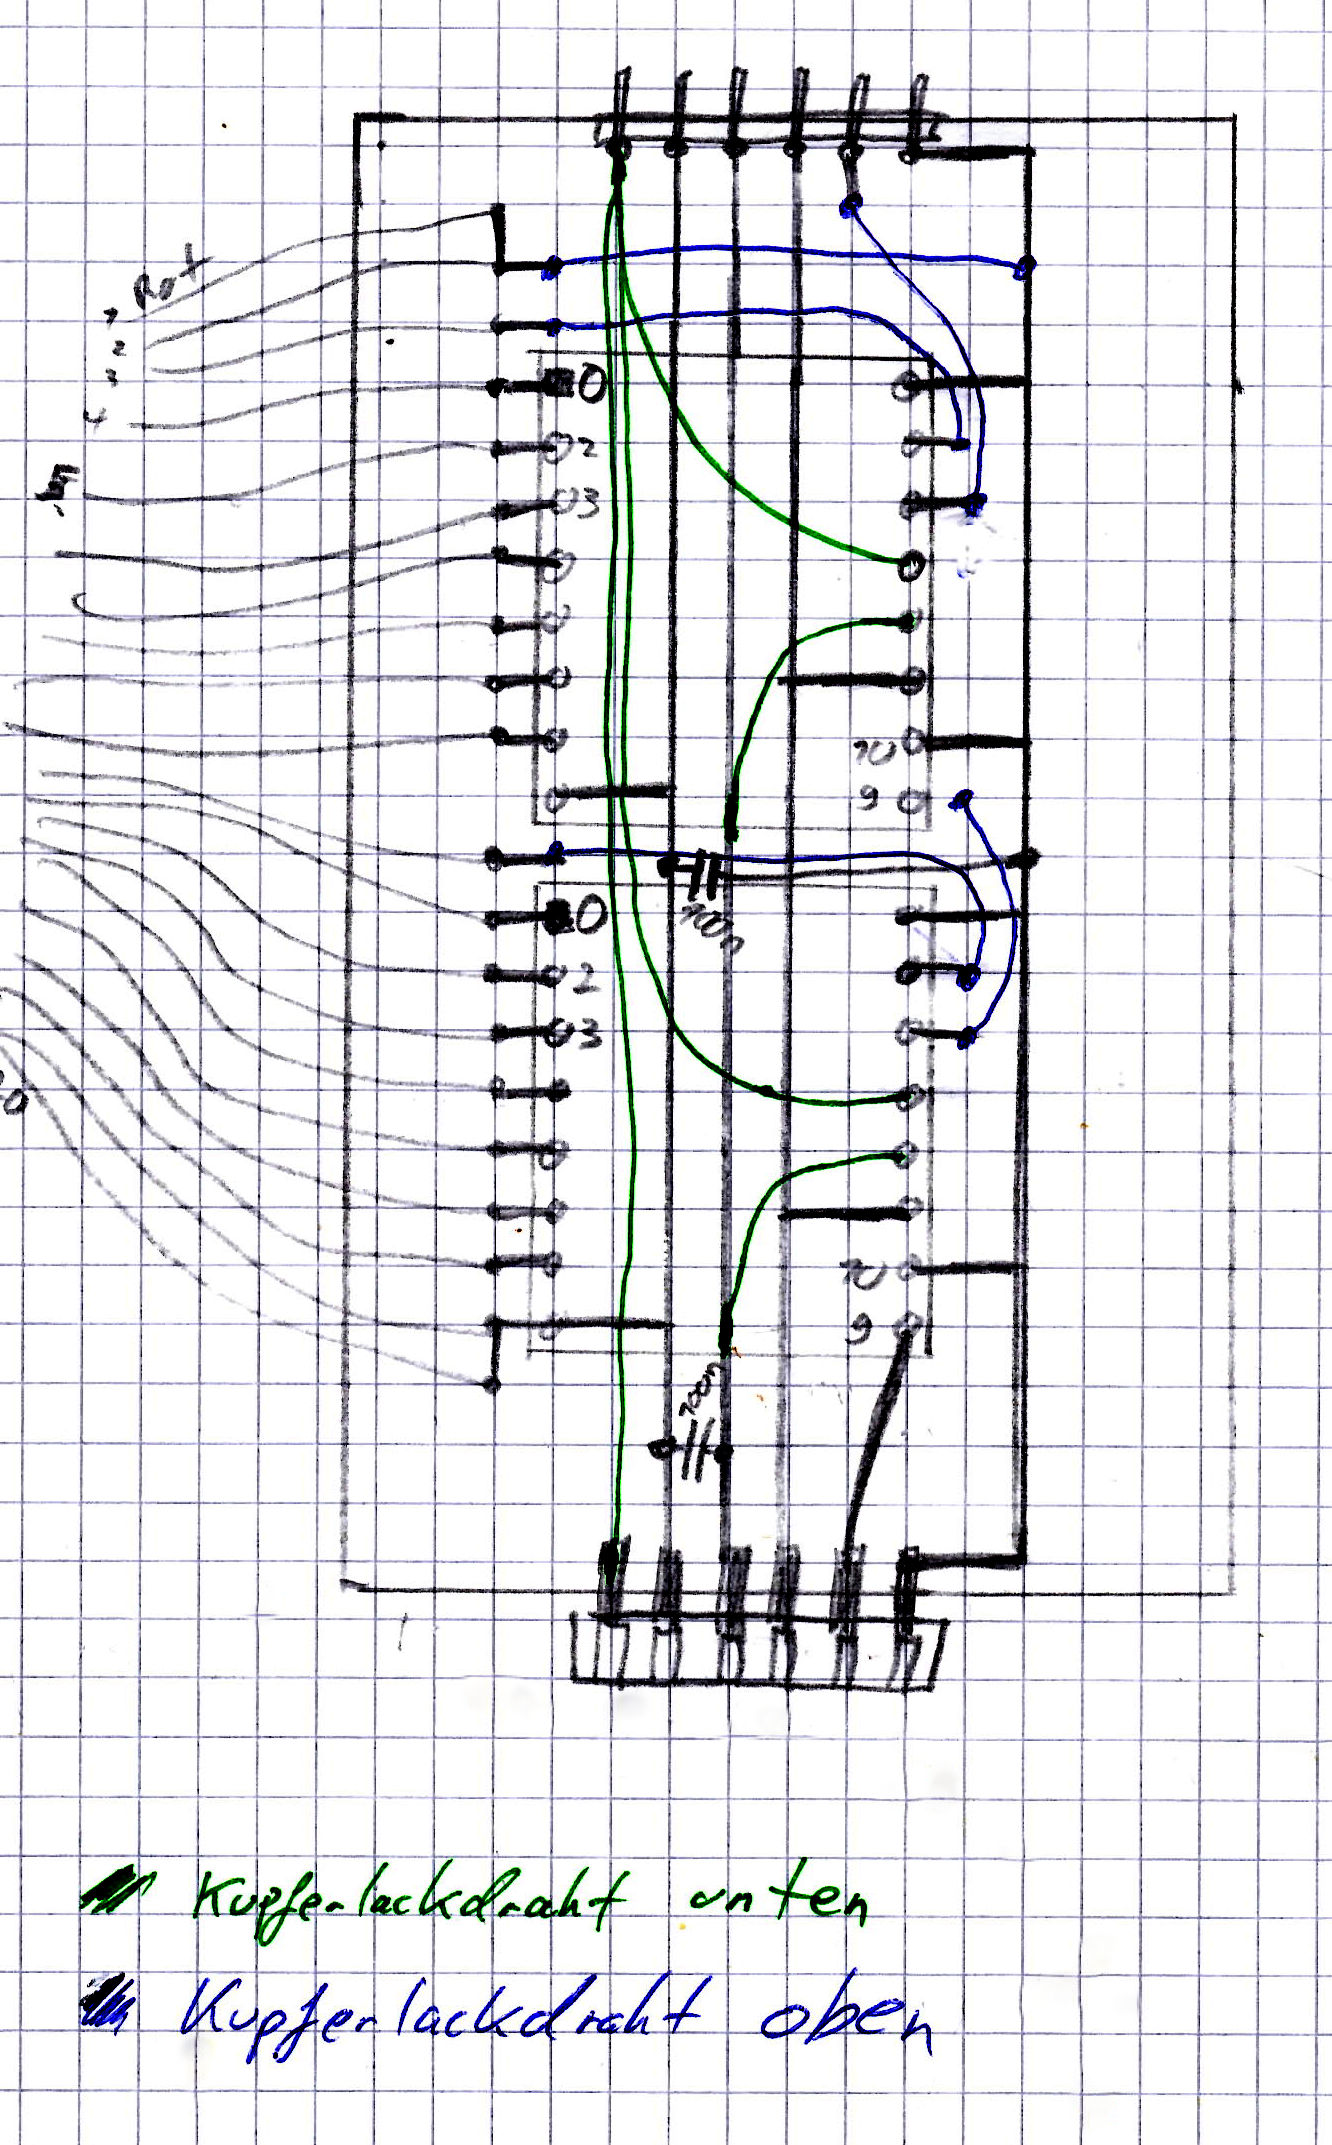 Rot
1
2
3
4
0
2
3
10
9
100n
0
2
3
10
9
100n
Kupferlackdraht unten
Kupferlackdraht oben